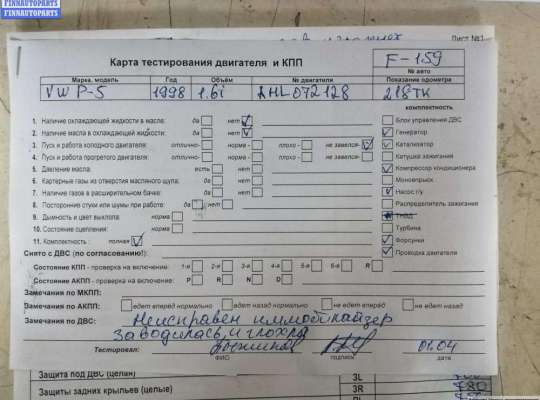 FINNAUTOPARTS
FINNAUTOPARTS
FINNAUTOPARTS
Лист №1
Карта тестирования двигателя и КПП
F-159
№ авто
Марка, модель Год Объём № двигателя Показание одометра
VW P-5 1998 1.6i AHL072128 218тк
комплектность
1. Наличие охлаждающей жидкости в масле: да нет
Блок управления ДВС
2. Наличие масла в охлаждающей жидкости: да нет
Генератор
3. Пуск и работа холодного двигателя: отлично- норма - плохо - не завелся-
Катализатор
4. Пуск и работа прогретого двигателя: отлично- норма - плохо -
Катушка зажигания
5. Давление масла: есть нет
Компрессор кондиционера
6. Картерные газы из отверстия масляного щупа: да нет
Моновпрыск
7. Наличие газов в расширительном бачке: да нет
Насос г/у
8. Посторонние стуки или шумы при работе: да нет
Распределитель зажигания
9. Дымность и цвет выхлопа: норма
ТНВД
10. Состояние сцепления: норма
Турбина
11. Комплектность : полная
Форсунки
Снято с ДВС (по согласованию!):
Проводка двигателя
Состояние КПП - проверка на включение: 1-я 2-я 3-я 4-я 5-я 6-я R
Состояние АКПП - проверка на включение: P R N D
Замечания по МКПП:
Замечания по АКПП: едет вперед нормально едет назад нормально не едет вперёд не едет назад
Замечания по ДВС: Неисправен иммобилайзер
заводилась и глохла
Тестировал: 01.04
ФИО подпись дата
Защита под ДВС (целая) 3L
Защиты задних крыльев (целые) 3R 780